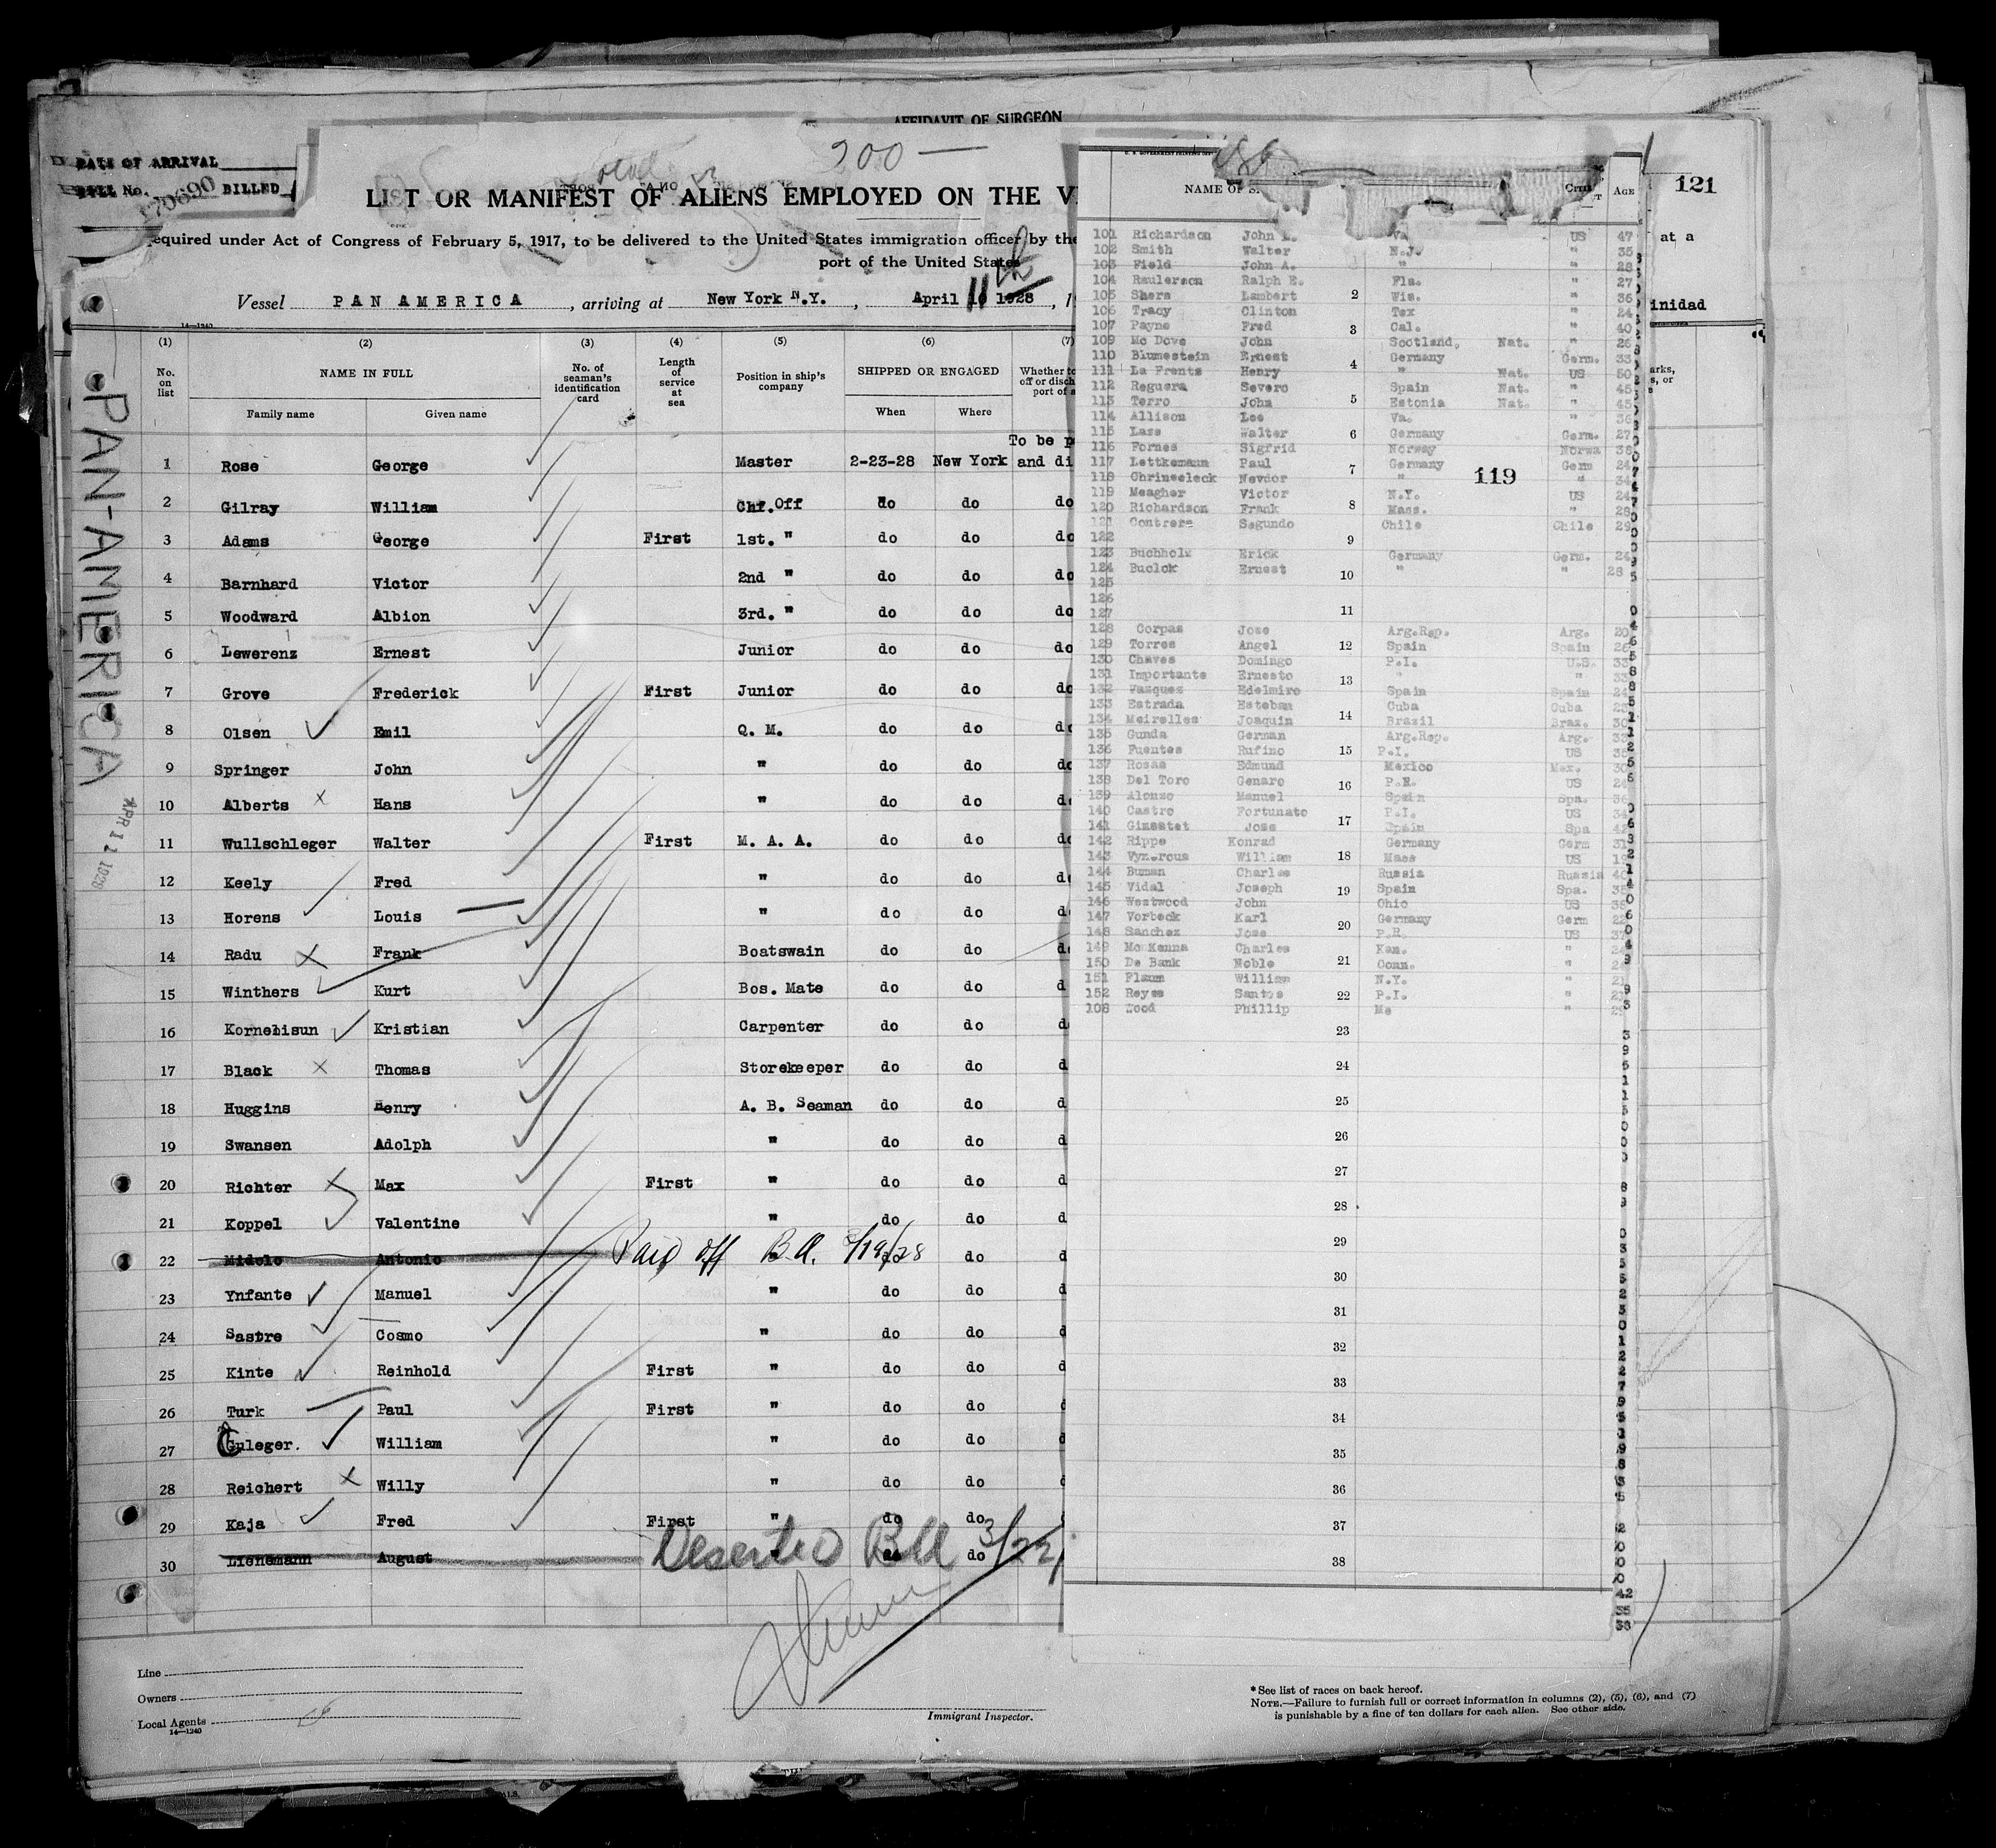 AFFIDAVIT OF SURGEON
DATE OF ARRIVAL
BILL No. 170690 BILLED
200 —
LIST OR MANIFEST OF ALIENS EMPLOYED ON THE V
equired under Act of Congress of February 5, 1917, to be delivered to the United States immigration officer by the
port of the United States
Vessel PAN AMERICA, arriving at New York N.Y., April 11 1928, 1
14-1240
PAN-AMERICA
APR 11 1928
(1) (2) (3) (4) (5) (6) (7)
No. on list NAME IN FULL No. of seaman's identification card Length of service at sea Position in ship's company SHIPPED OR ENGAGED Whether to
off or disch
port of a
Family name Given name When Where
To be p
1 Rose George Master 2-23-28 New York and di
2 Gilray William Chf. Off do do do
3 Adams George First 1st. " do do do
4 Barnhard Victor 2nd " do do do
5 Woodward Albion 3rd. " do do do
6 Lewerenz Ernest Junior do do do
7 Grove Frederick First Junior do do do
8 Olsen Emil Q. M. do do do
9 Springer John " do do do
10 Alberts Hans " do do do
11 Wullschleger Walter First M. A. A. do do do
12 Keely Fred " do do do
13 Horens Louis " do do do
14 Radu Frank Boatswain do do do
15 Winthers Kurt Bos. Mate do do d
16 Kornelisun Kristian Carpenter do do d
17 Black Thomas Storekeeper do do d
18 Huggins Henry A. B. Seaman do do d
19 Swansen Adolph " do do d
20 Richter Max First " do do d
21 Koppel Valentine " do do d
22 Midelo Antonio Paid off B.A. do do d
23 Ynfante Manuel " do do d
24 Sastre Cosmo " do do d
25 Kinte Reinhold First " do do d
26 Turk Paul First " do do d
27 Guleger. William " do do d
28 Reichert Willy " do do d
29 Kaja Fred First " do do
30 Lienemann August Deserted BA 3/22/ do
Line
Owners
Local Agents
14-1240
Immigrant Inspector.
* See list of races on back hereof.
NOTE.—Failure to furnish full or correct information in columns (2), (5), (6), and (7)
is punishable by a fine of ten dollars for each alien. See other side.
121
at a
inidad
arks,
s, or
NAME OF S AGE
101 Richardson John Va US 47
102 Smith Walter N.J. " 35
103 Field John A. " " 28
104 Raulerson Ralph E. Fla. " 27
105 Shera Lambert Wis. " 36
106 Tracy Clinton Tex " 24
107 Payne Fred Cal. " 40
109 Mc Dove John Scotland, Nat. " 26
110 Blumestein Ernest Germany Germ. 33
111 La Frentz Henry " Nat. US 50
112 Reguera Severo Spain Nat. " 45
113 Terro John Estonia Nat. " 45
114 Allison Lee Va. " 36
115 Lass Walter Germany Germ. 27
116 Fornes Sigfrid Norway Norwa 38
117 Lettkemann Paul Germany Germ 24
118 Chrineeleck Nevdor " " 34
119
119 Meagher Victor N.Y. US 24
120 Richardson Frank Mass. " 28
121 Contrera Segundo Chile Chile 29
122
123 Buchholz Erick Germany Germ. 24
124 Buclok Ernest " " 28
125
126
127
128 Corpas Jose Arg.Rep. Arg. 20
129 Torres Angel Spain Spain 26
130 Chaves Domingo P.I. U.S. 33
131 Importante Ernesto " " 33
132 Vazquez Edelmiro Spain Spain 24
133 Estrada Esteban Cuba Cuba
134 Meirelles Joaquin Brazil Braz. 30
135 Gunda German Arg.Rep. Arg.
136 Fuentes Rufino P.I. US
137 Rosas Edmund Mexico Mex. 30
138 Del Toro Genaro P.R. US
139 Alonzo Manuel Spain Spa. 36
140 Castro Fortunato P.I. US
141 Gimentet Jose Spain Spa 42
142 Rippe Konrad Germany Germ 31
143 William Mass US 19
144 Buman Charles Russia Russia 40
145 Vidal Joseph Spain Spa.
146 Westwood John Ohio US
147 Vorbeck Karl Germany Germ 22
148 Sanchez Jose P.R. US 37
149 Mc Kenna Charles Kan. "
150 De Bank Noble Conn. "
151 Flaum William N.Y. " 21
152 Reyes Santos P.I. "
108 Wood Phillip Me "
2
3
4
5
6
7
8
9
10
11
12
13
14
15
16
17
18
19
20
21
22
23
24
25
26
27
28
29
30
31
32
33
34
35
36
37
38